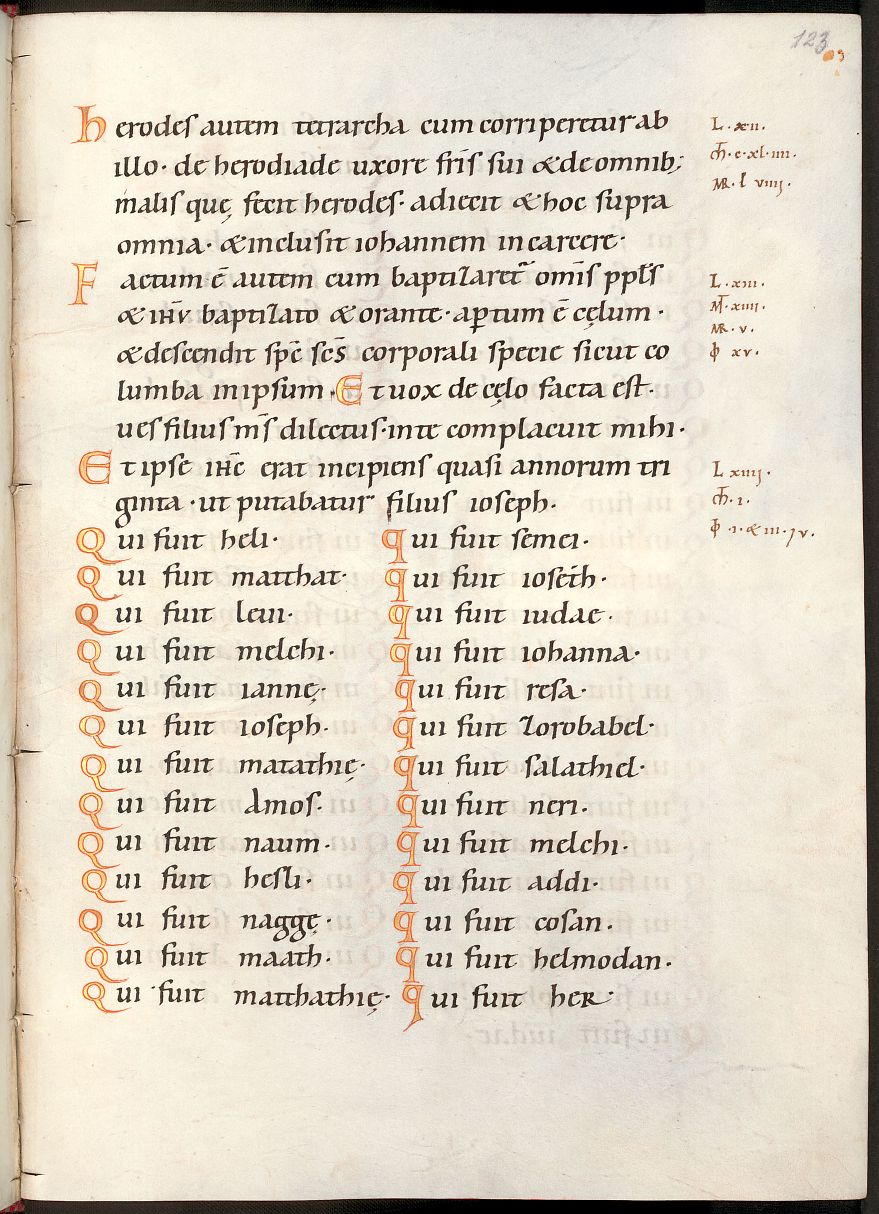 123
herodes autem tetrarcha cum corriperetur ab
illo · de herodiade uxore fr̄is sui & de omnib;
malis quę fecit herodes · adiecit & hoc supra
omnia · & inclusit iohannem in carcere ·
Factum ē autem cum baptizaret̄ om̄is pplꝰs
& ih̄u baptizato & orante · aꝑtum ē cęlum ·
& descendit sp̄c sc̄s corporali specie sicut co
lumba in ipsum · Et uox de cęlo facta est ·
ues filius m̄s dilectus · in te complacuit mihi ·
Et ipse ih̄c erat incipiens quasi annorum tri
ginta · ut putabatur filius ioseph ·
Qui fuit heli ·
Qui fuit matthat ·
Qui fuit leui ·
Qui fuit melchi ·
Qui fuit iannę ·
Qui fuit ioseph ·
Qui fuit matathię ·
Qui fuit Amos ·
Qui fuit naum ·
Qui fuit hesli ·
Qui fuit naggę ·
Qui fuit maath ·
Qui fuit matthathię ·
qui fuit semei ·
qui fuit ioseth ·
qui fuit iudae ·
qui fuit iohanna ·
qui fuit resa ·
qui fuit zorobabel ·
qui fuit salathiel ·
qui fuit neri ·
qui fuit melchi ·
qui fuit addi ·
qui fuit cosan ·
qui fuit helmodan ·
qui fuit her ·
L · xii ·
m̄ · c · xl · iiii ·
MR · l viiij ·
L · xiii ·
m̄ · xiiii ·
MR · v ·
φ xv ·
L xiiij ·
m̄ · i ·
φ · i · & iii · iv ·